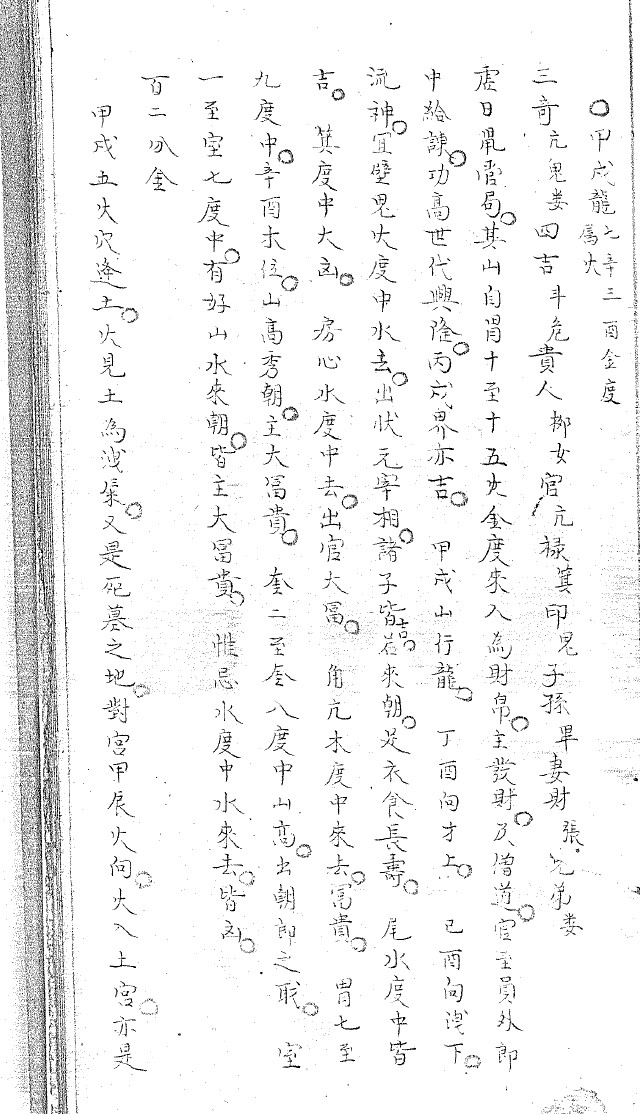 ○甲戌龍七辛三酉金度
屬火
三奇亢鬼婁四吉斗危貴人柳女官亢祿箕印鬼子孫畢妻財張兄弟婁
虛日鼠管局其山自胃十至十五火金度來入為財帛主發財及僧道官至員外郎
中給諫功高世代興隆丙戌界亦吉 甲戌山行龍 丁酉向才上 己酉向洩下
流神宜壁鬼火度中水去出狀元宰相諸子皆吉若來朝足衣食長壽 尾水度中皆
吉 箕度中大凶 房心水度中去出官大冨 角亢木度中來去冨貴 胃七至
九度中辛酉木位山高秀朝主大冨貴 奎二至奎八度中山高出朝郎之職 室
一至室七度中有好山水來朝皆主大冨貴 惟忌水度中水來去皆凶
百二分金
甲戌五火穴逢土火見土為洩氣又是死墓之地對宮甲辰火向火入土宮亦是